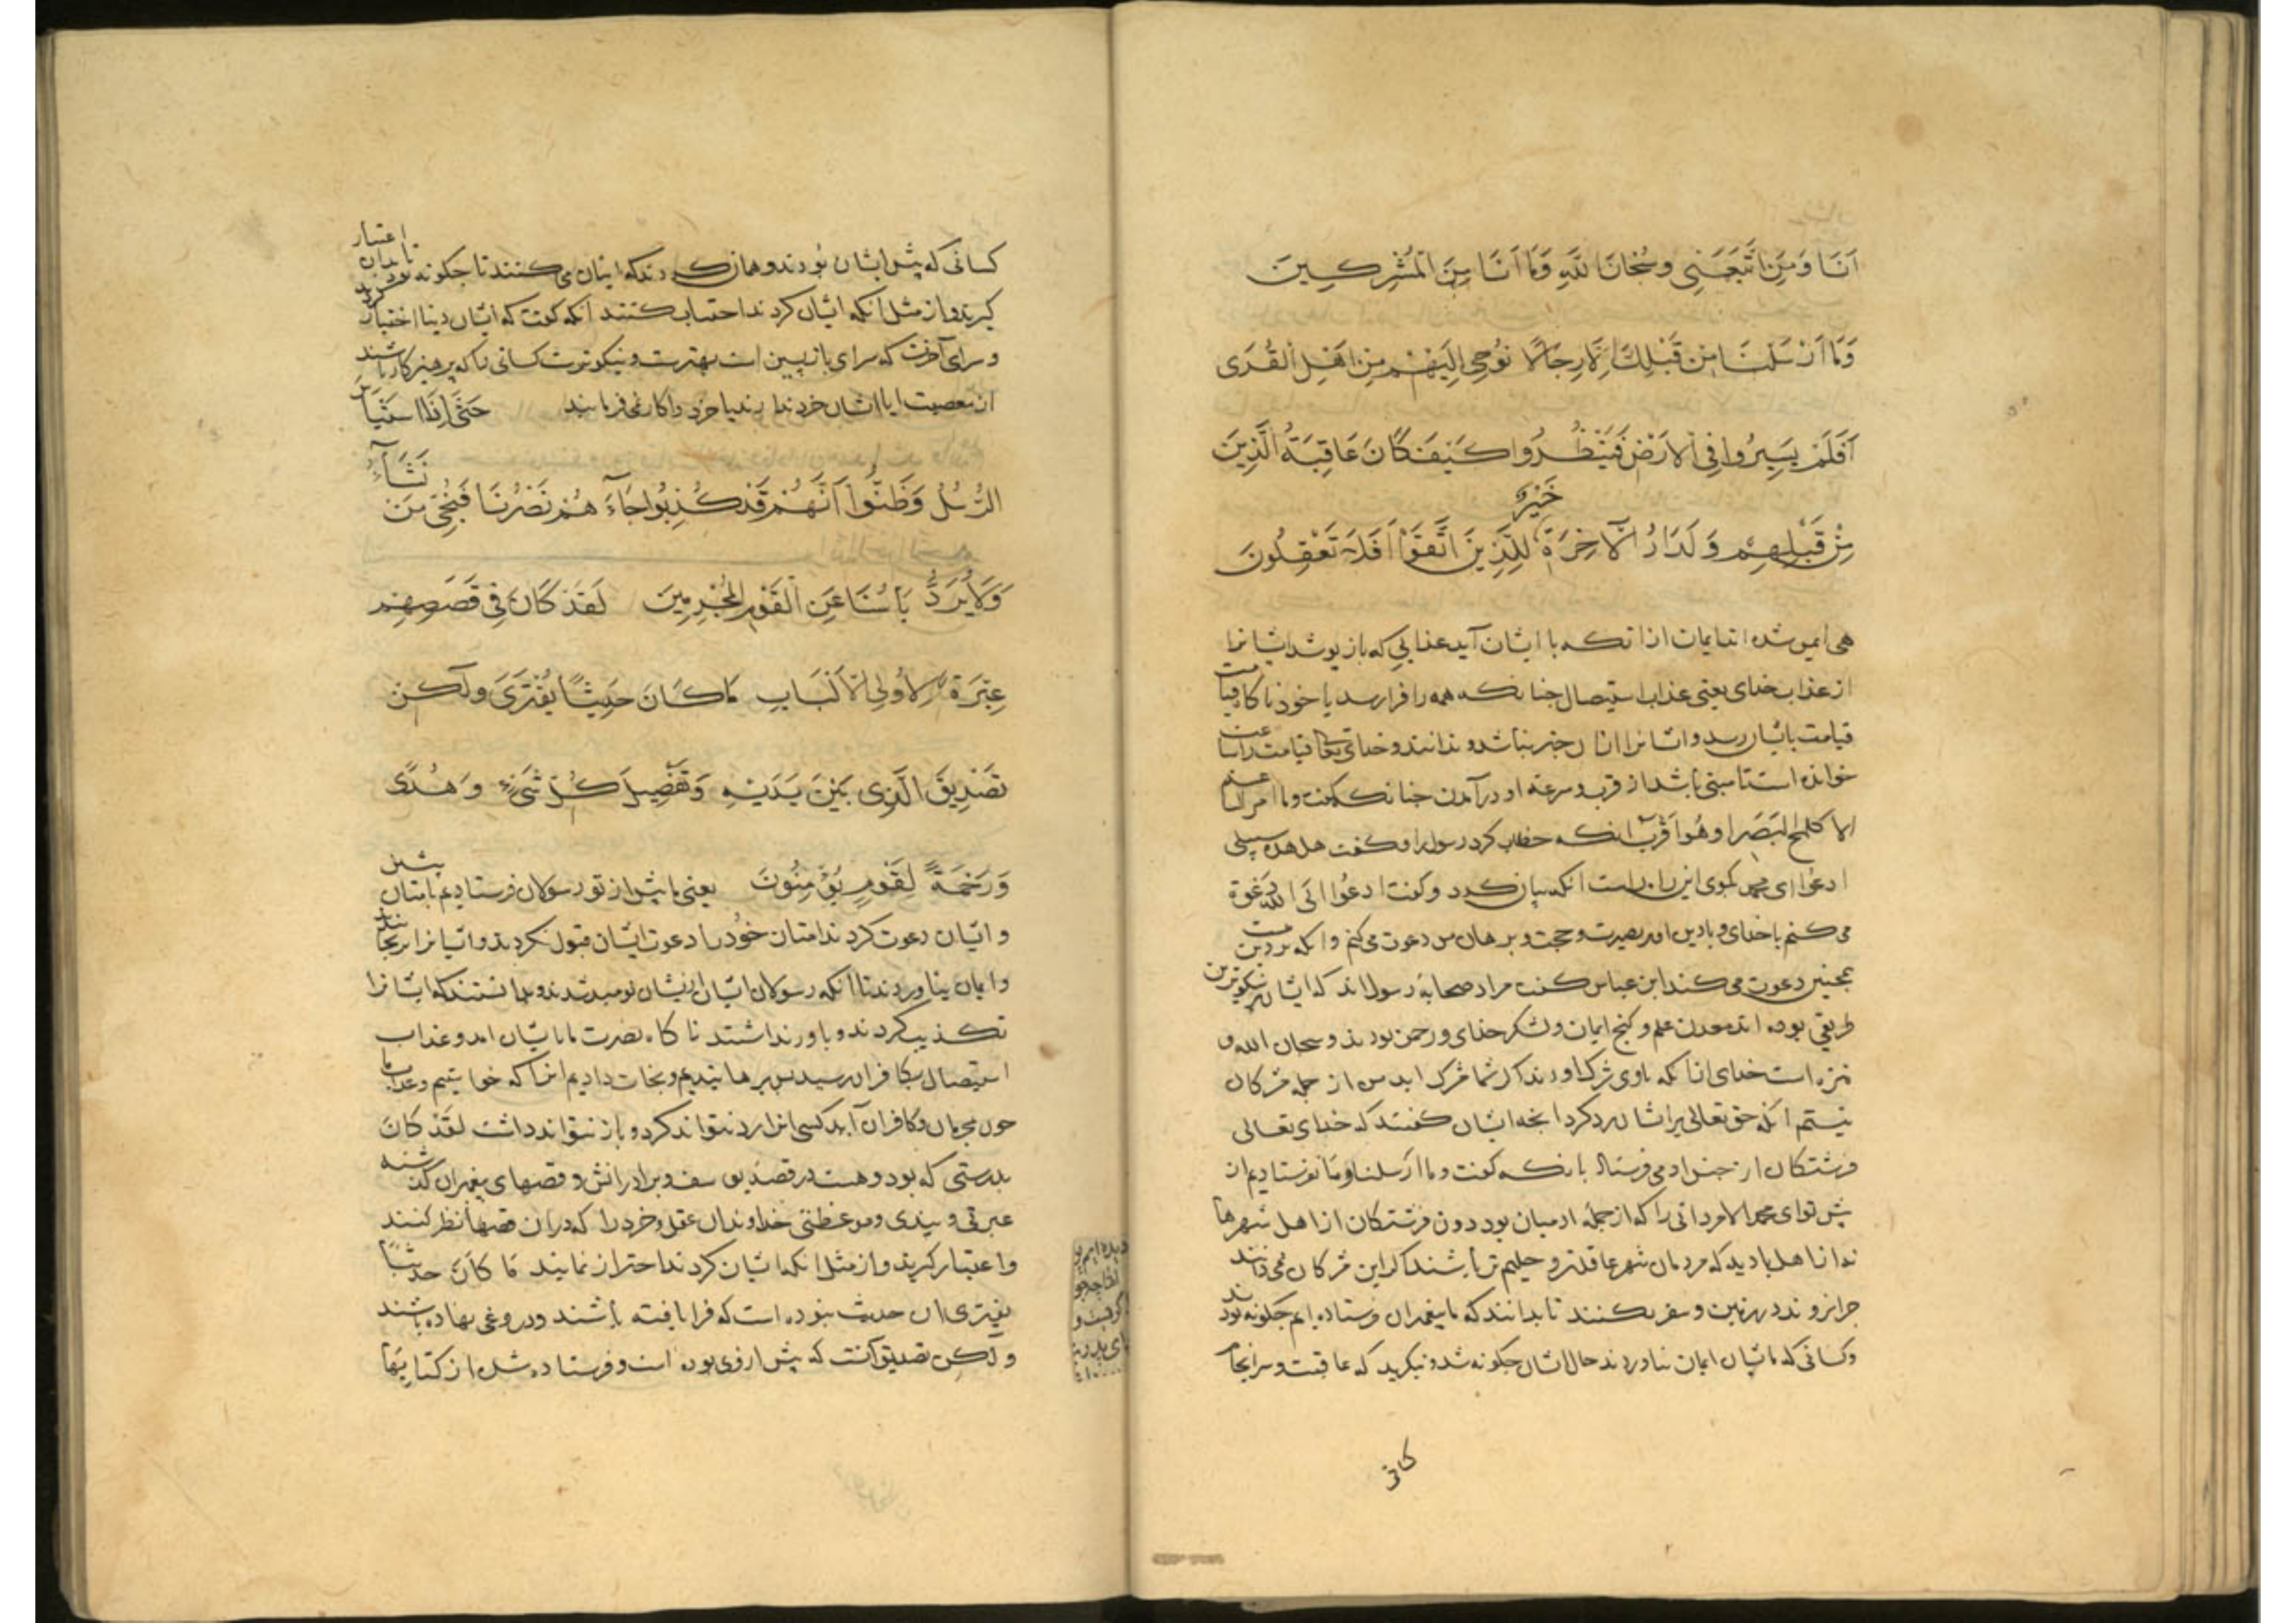 اَنَا وَمَنِ اتَّبَعَنِى وسُبْحَانَ اللّٰهِ وَمَا اَنَا مِنَ الْمُشْرِكِينَ
وَمَا اَرْسَلْنَا مِن قَبْلِكَ اِلَّا رِجَالًا نُوحِى اِلَيْهِمْ مِن اَهْلِ الْقُرَى
اَفَلَمْ يَسِيرُوا فِى الْاَرْضِ فَيَنْظُرُوا كَيْفَ كَانَ عَاقِبَةُ الَّذِينَ
مِنْ قَبْلِهِمْ وَلَدَارُ الْآخِرَةِ خَيْرٌ لِلَّذِينَ اتَّقَوْا اَفَلَا تَعْقِلُونَ
هى ايمن شده اند ايمان از انكه با ايشان آيد عذابى كه باز پوشد ايشانرا
از عذاب خداى يعنى عذاب استيصال چنانكه همه را فرا رسد يا خود ناكاه قيامت
قيامت بايشان رسد و ايشانرا ازان خبر نباشد و ندانند و خداى تعالى قيامت را ساعت
خوانده است تا مبنى باشد از قرب و سرعة او در آمدن چنانكه كفت وما امر الساعة
الا كلمح البَصَر او هُو اَقْرَبُ انكه خطاب كرد رسول را و كفت هل هذه سبيلى
ادعُوا اى محمد بكوى اين راه راست انكه بيان كرد و كفت ادعُوا الَى اللّه دَعْوة
مى كنم با خداى و با دين او بر بصيرت و حجت و برهان من دعوت مى كنم و انكه بر دين منست
همچنين دعوت مى كند ابن عباس كفت مراد صحابهٔ رسول اند كه ايشان بر نيكوترين
طريقى بوده اند معدن علم و كنج ايمان و لشكر خداى و رحمن بودند و سبحان الله و
منزه است خداى از انكه با وى شرك اورند اكر شما شرك ... من از جمله مشركان
نيستم انكه حق تعالى بر ايشان رد كرد انچه ايشان كفتند كه خداى تعالى
فرشتكان از جنس ادمى فرستاد بانكه كفت وما ارسلنا و ما نفرستاديم از
پيش تو اى محمد الا مردانى را كه از جمله ادميان بود دون فرشتكان از اهل شهرها
نه از اهل باديه كه مردمان شهر عاقلتر و حليم تر باشند اكر اين مشركان نمى دانند
چرا نروند در زمين و سفر نكنند تا بدانند كه ما پيغمبران فرستاده ايم چكونه بودند
و كسانى كه بايشان ايمان نياوردند حال ايشان چكونه شد و بنكريد كه عاقبت و سرانجام
كسانى كه پيش ايشان بودند و همان كردند كه اينان مى كنند تا چكونه بود تا بدان اعتبار
كيرند و از مثل انكه ايشان كردند اجتناب كنند انكه كفت كه ايشان دنيا اختيار كردند
و سراى آخرت كه سراى باز پسين است بهترست و نيكوترست كسانى را كه پرهيزكار باشند
از معصيت ايا ايشان خرد ندارند يا خرد را كار نمى فرمايند حَتَّى اِذَا اسْتَيْاَسَ
الرُّسُلُ وَظَنُّوا اَنَّهُمْ قَدْ كُذِبُوا جَاءَهُمْ نَصْرُنَا فَنُجِّىَ مَن نَشَاءُ
وَلَا يُرَدُّ بَاْسُنَا عَنِ الْقَوْمِ الْمُجْرِمِينَ لَقَدْ كَانَ فِى قَصَصِهِمْ
عِبْرَةٌ لِاُولِى الْاَلْبَابِ مَا كَانَ حَدِيثًا يُفْتَرَى وَلَكِنْ
تَصْدِيقَ الَّذِى بَيْنَ يَدَيْهِ وَتَفْصِيلَ كُلِّ شَىْءٍ وَهُدًى
وَرَحْمَةً لِقَوْمٍ يُؤْمِنُونَ يعنى ما پيش از تو رسولان فرستاديم بامتان پيشين
و ايشان دعوت كردند امتان خود را دعوت ايشان قبول نكردند و ايشانرا برنجانيدند
و ايمان نياوردند تا انكه رسولان ايشان از ايشان نوميد شدند و بدانستند كه ايشانرا
تكذيب كردند و باور نداشتند ناكاه نصرت ما بايشان امد و عذاب
استيصال بكافران رسيد پس برهانيديم و نجات داديم انرا كه خواستيم و عذاب ما
چون بمجرمان و كافران آيد كسى انرا رد نتواند كرد و باز نتواند داشت لقَدْ كَانَ
بدرستى كه بود و هست در قصهٔ يوسف و برادرانش و قصهاى پيغمبران كذشته
عبرتى و پندى و موعظتى خداوندان عقل و خرد را كه دران قصهها نظر كنند
و اعتبار كيرند و از مثل انكه ايشان كردند احتراز نمايند مَا كَانَ حديثًا
يفترى اين حديث نبوده است كه فرا بافته باشند و دروغى نهاده باشند
و لكِن تصديق آنست كه پيش از وى بوده است و فرستاده شده از كتابها
كسانى